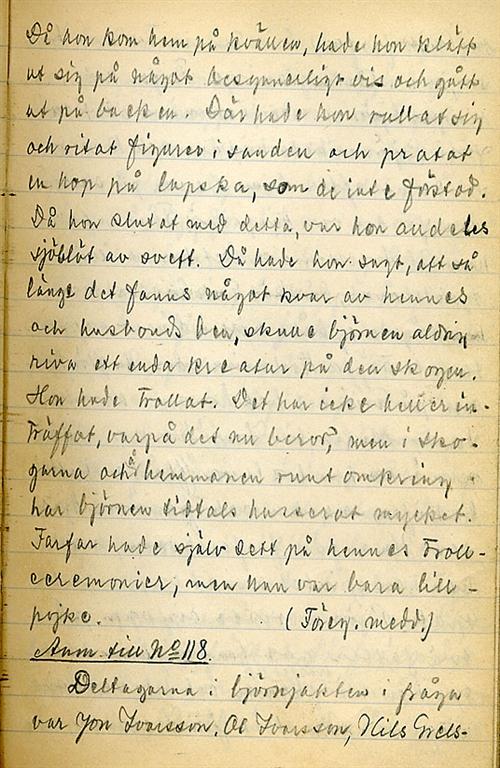 Då hon kom hem på kvällen, hade hon klätt
ut sig på något besynnerligt vis och gått
ut på backen. Där hade hon rullat sig
och ritat figurer i sanden och pratat
en hop på lapska, som de inte förstod.
Då hon slutat med detta, var hon alldeles
sjöblöt av svett. Då hade hon sagt, att så
länge det fanns något kvar av hennes
och husbonds ben, skulle björnen aldrig
riva ett enda kreatur på den skogen.
Hon hade trollat. Det har icke heller in-
träffat, varpå det nu beror, men i sko-
garna och på hemmanen runt omkring
har björnen tidtals husserat mycket.
Farfar hade själv sett på hennes troll-
ceremonier, men han var bara lill-
pojke. (Föreg. medd.)
Anm. till No 118.
Deltagarna i björnjakten i fråga
var Jon Ivarsson, Ol Ivarsson, Nils Grels-